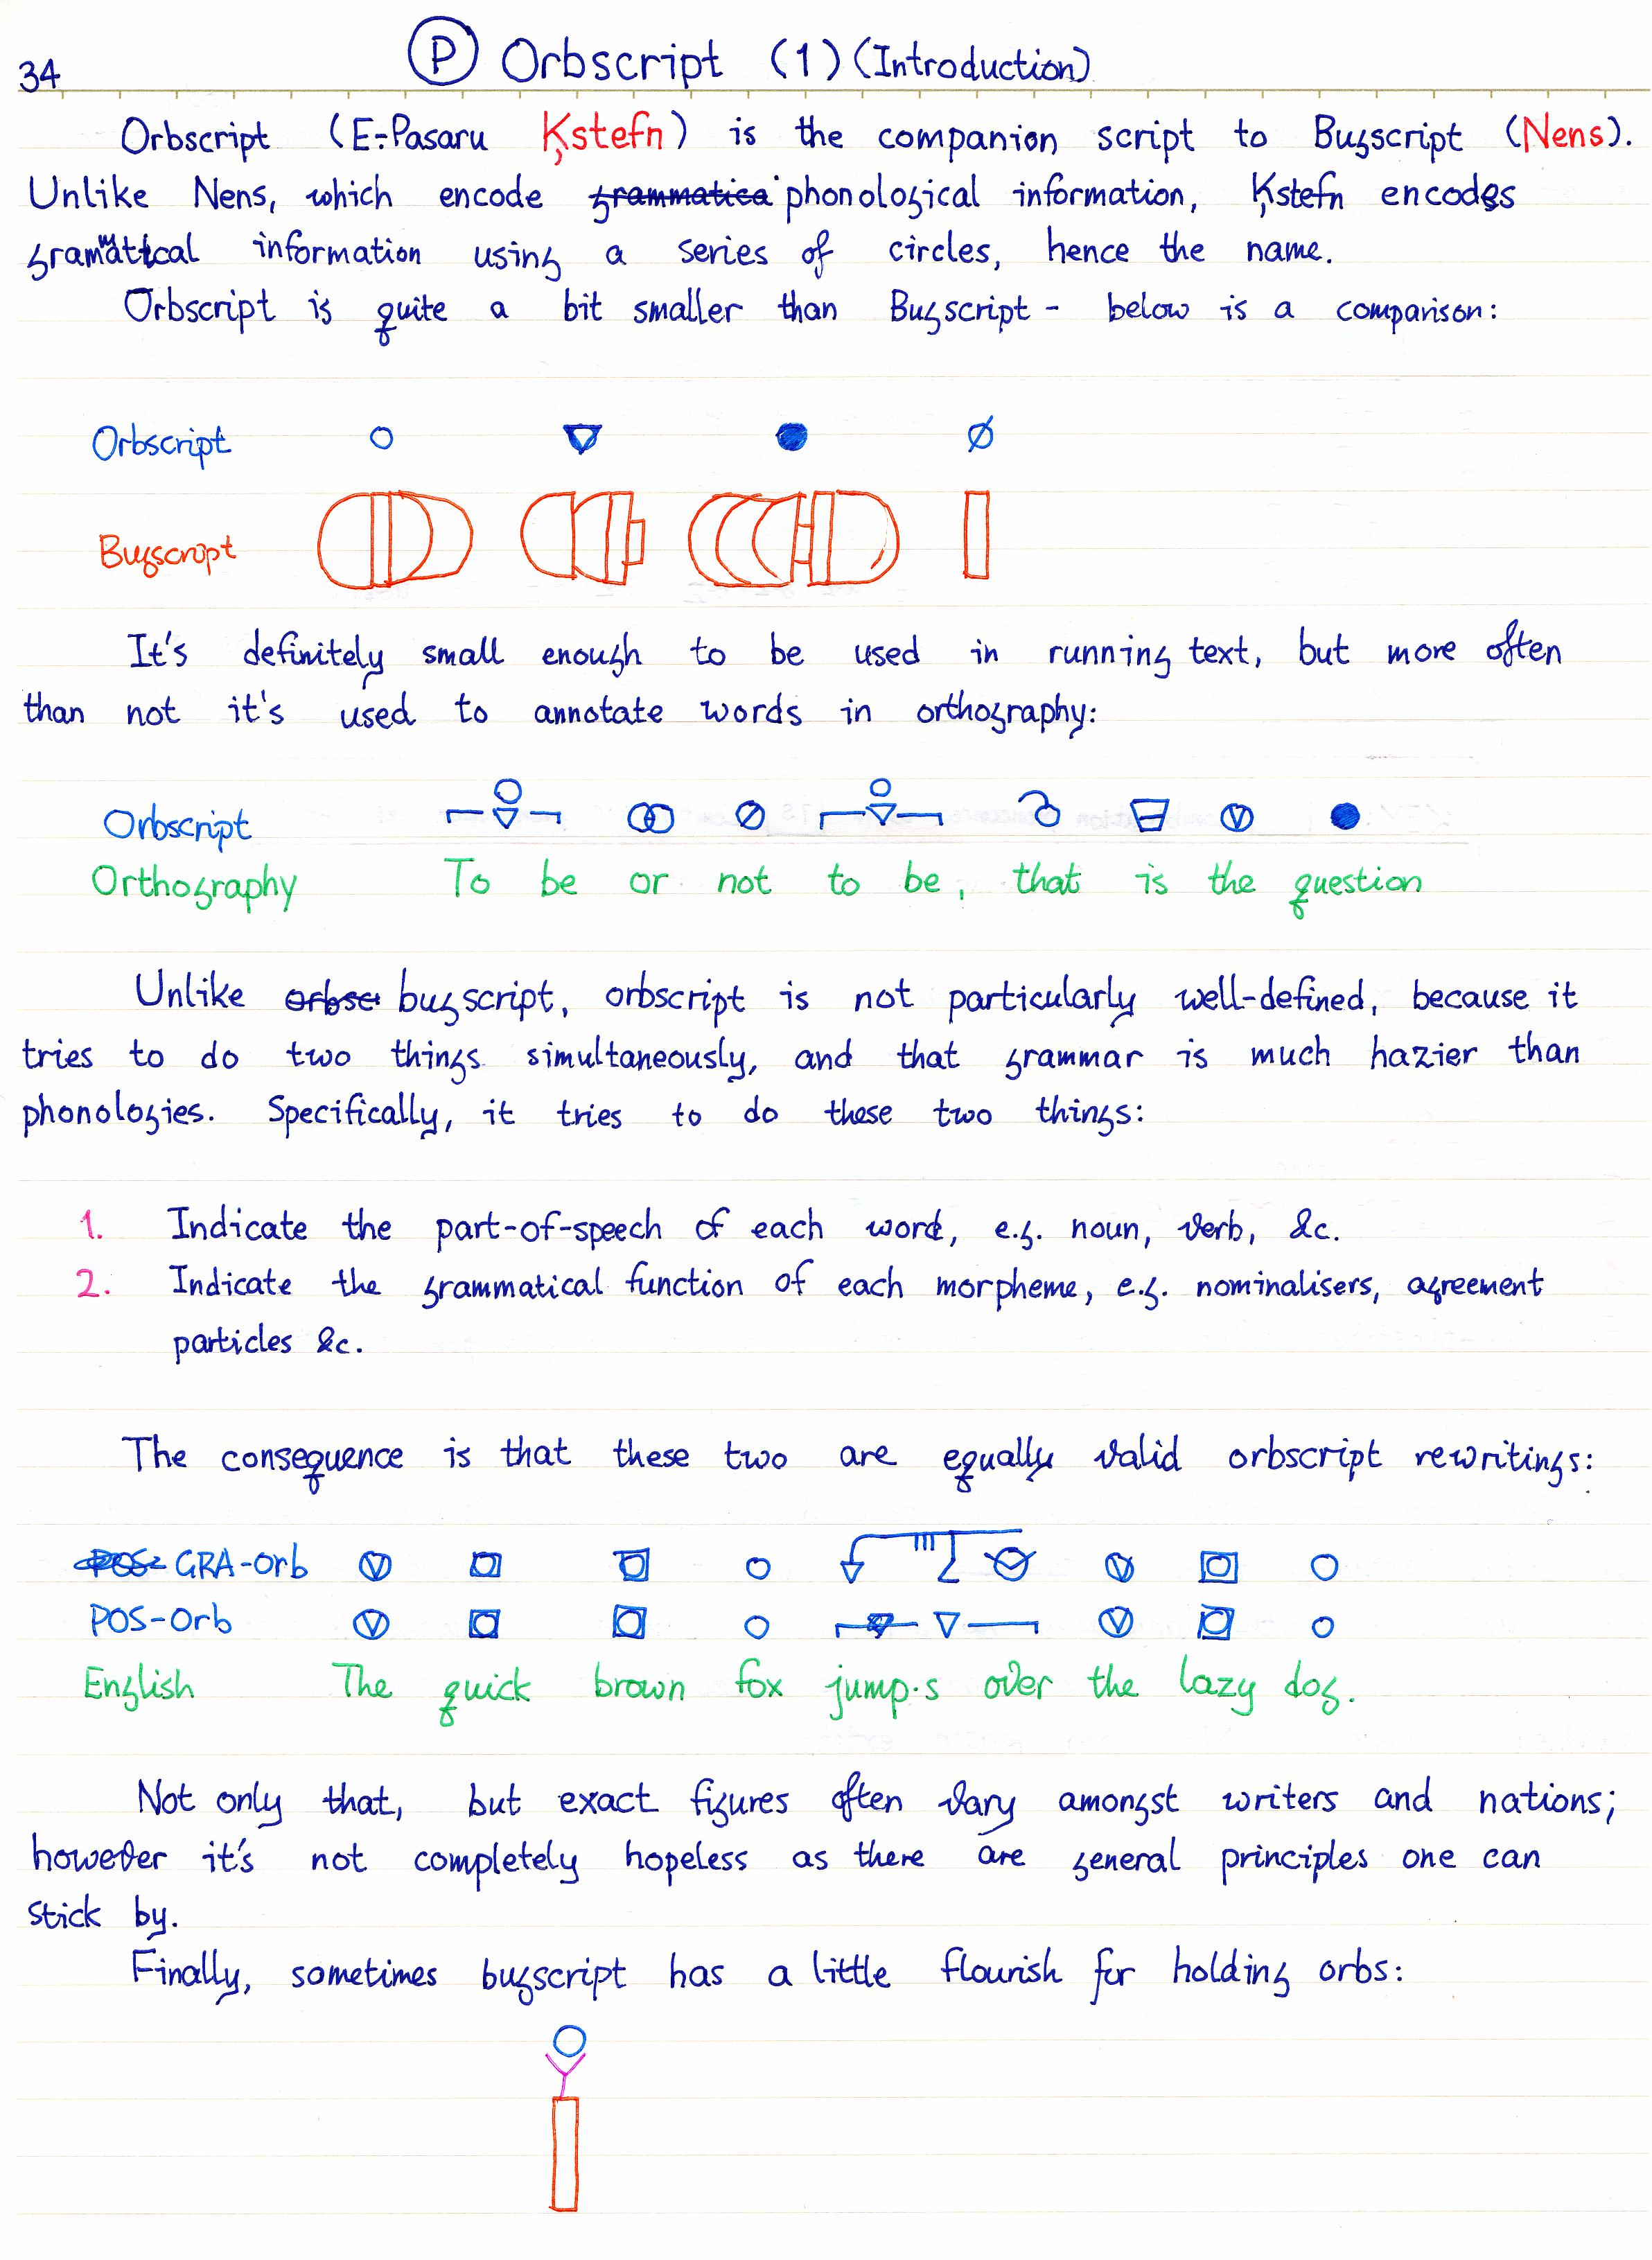 34
Ⓟ Orbscript (1) (Introduction)
Orbscript (E-Pasaru Ķstefn) is the companion script to Bugscript (Nens).
Unlike Nens, which encode grammatica phonological information, Ķstefn encodes
grammatical information using a series of circles, hence the name.
Orbscript is quite a bit smaller than Bugscript - below is a comparison:
Orbscript
Bugscript
It's definitely small enough to be used in running text, but more often
than not it's used to annotate words in orthography:
Orbscript
Orthography To be or not to be, that is the question
Unlike orbsc bugscript, orbscript is not particularly well-defined, because it
tries to do two things simultaneously, and that grammar is much hazier than
phonologies. Specifically, it tries to do these two things:
1. Indicate the part-of-speech of each word, e.g. noun, verb, &c.
2. Indicate the grammatical function of each morpheme, e.g. nominalisers, agreement
particles &c.
The consequence is that these two are equally valid orbscript rewritings:
POS- GRA-Orb
POS-Orb
English The quick brown fox jump·s over the lazy dog.
Not only that, but exact figures often vary amongst writers and nations;
however it's not completely hopeless as there are general principles one can
stick by.
Finally, sometimes bugscript has a little flourish for holding orbs: